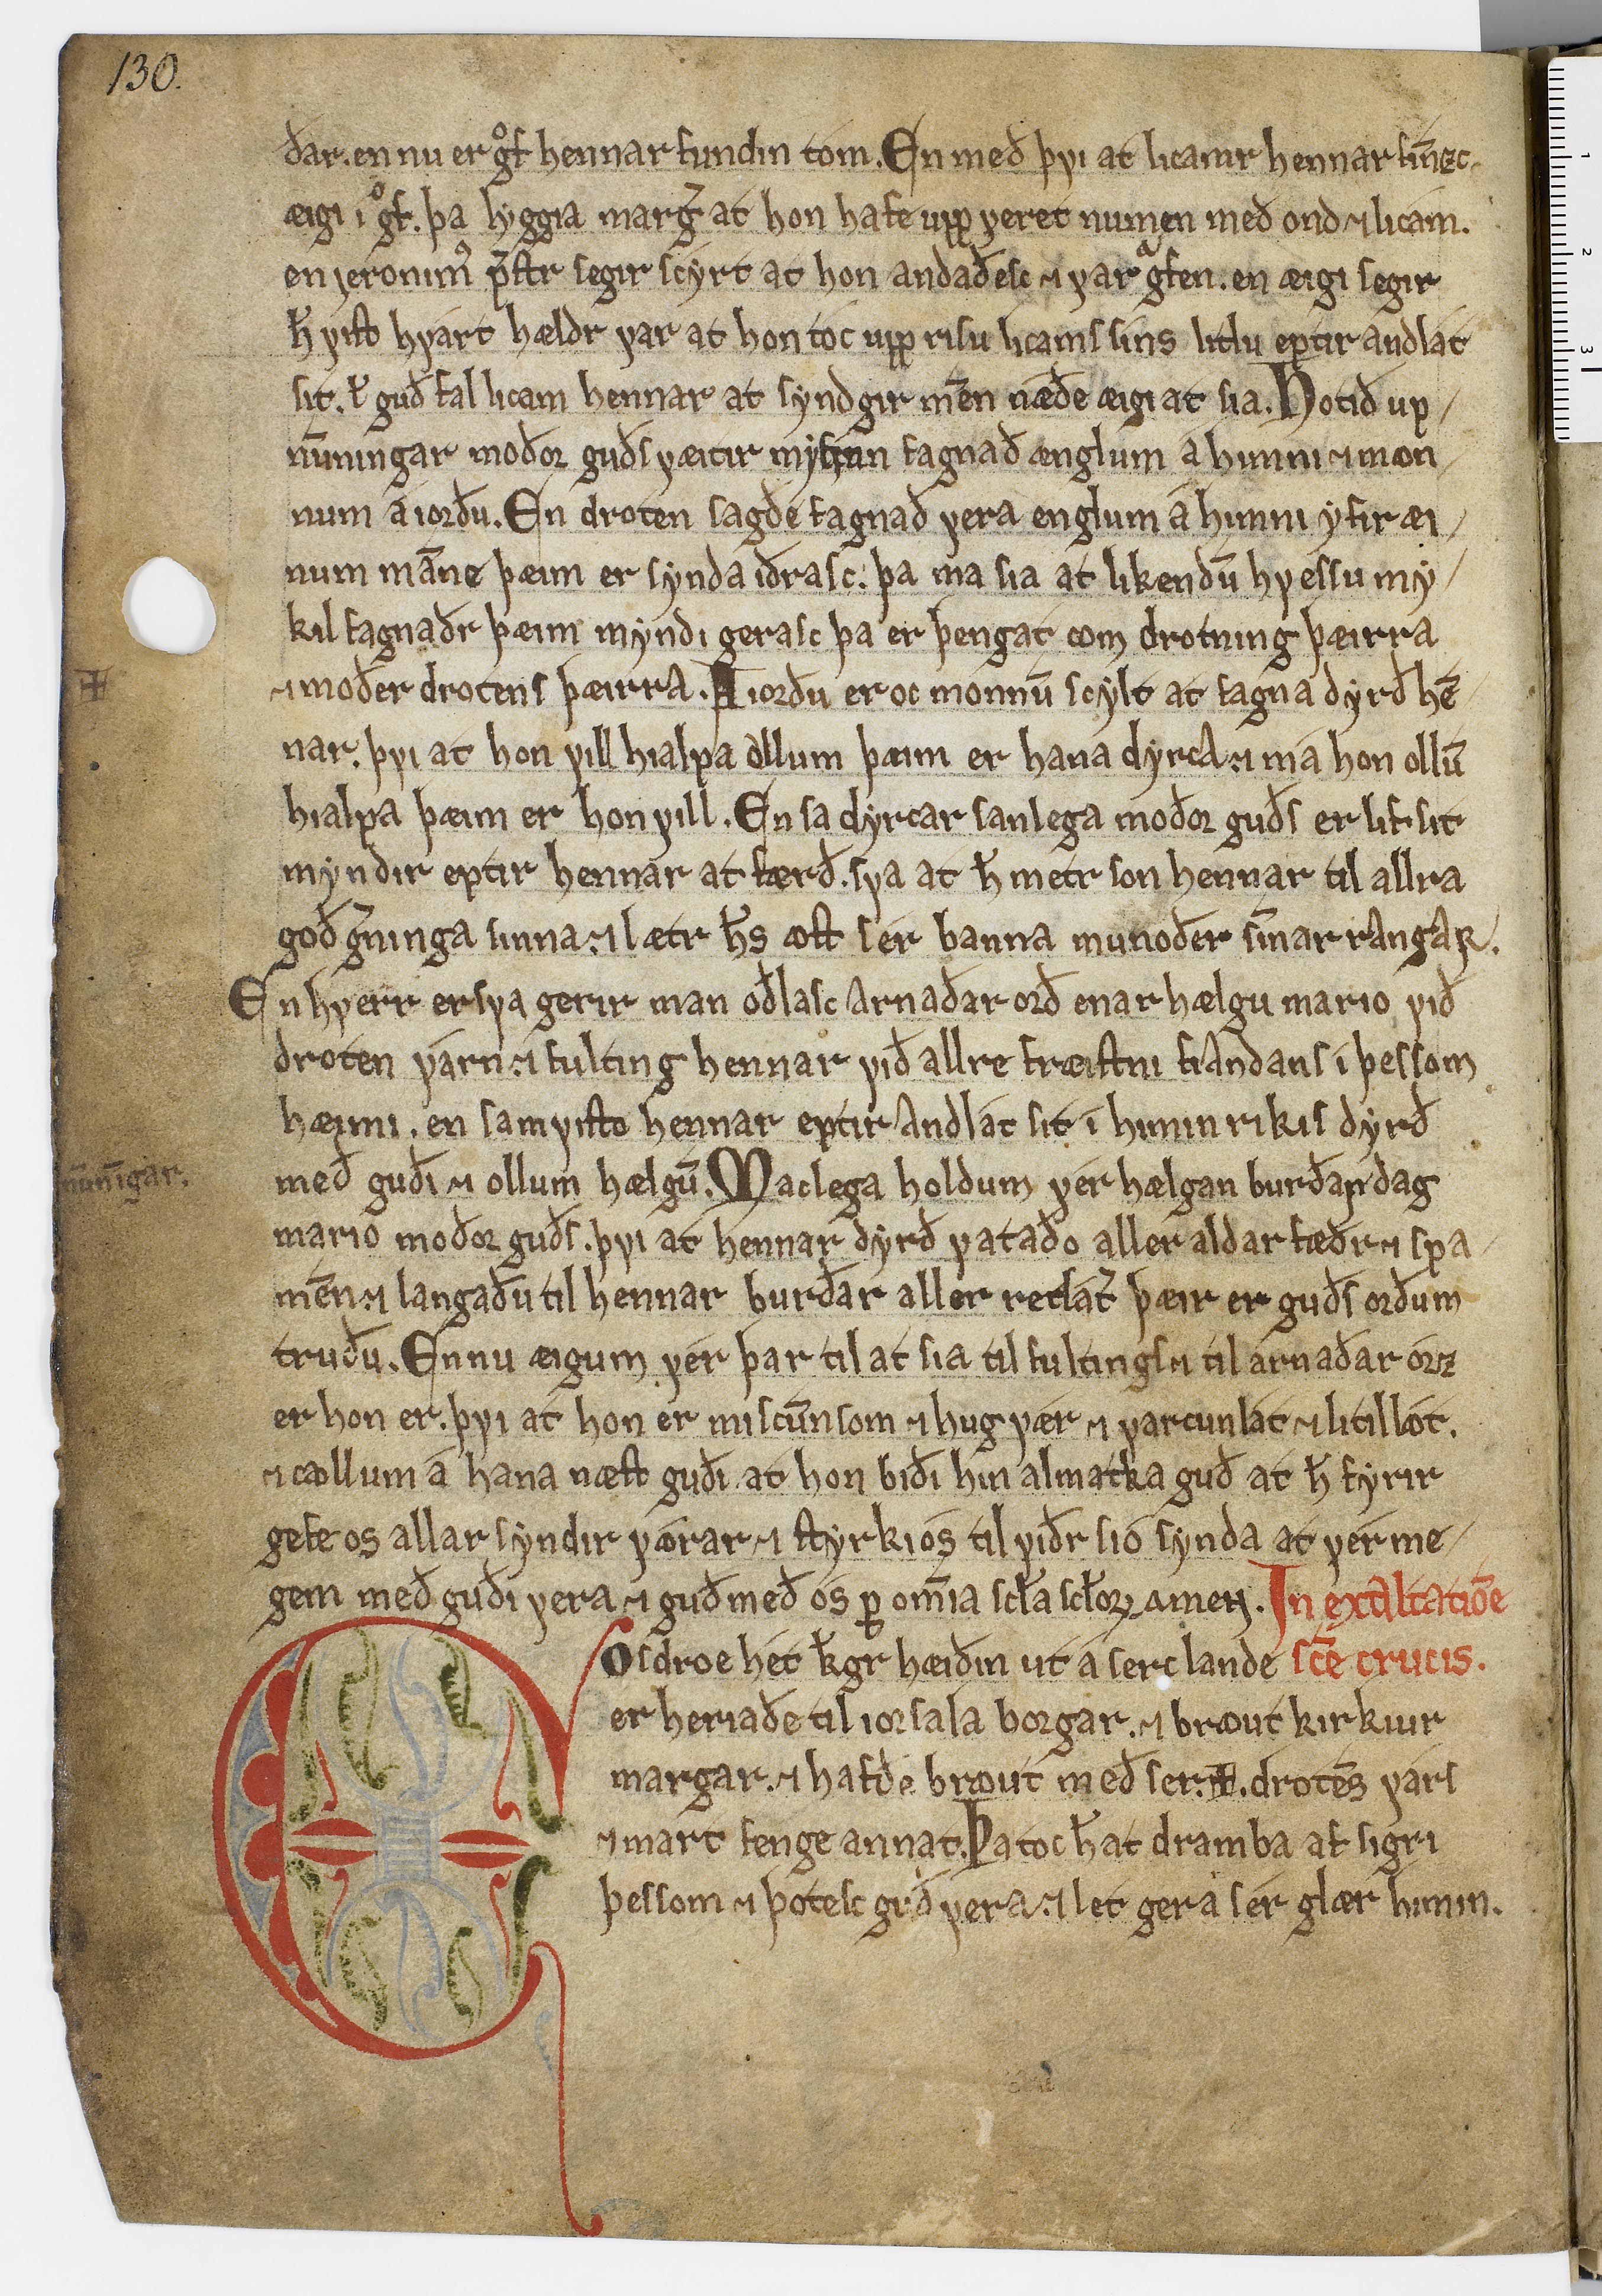 130.
ðar. en nu er gͦf hennar fundin tom. En með þvi at licamr hennar fin̄ezc
æigi i gͦf. þa hyggia marg̉ at hon hafe upp veret numen með ond ⁊ licam.
en ieronimꝰ p̄str segir scyrt at hon andaðesc ⁊ var gᷓfen. en æigi segir
ħ vist hvárt hældr var at hon toc upp risu licams sins litlu eptir andlát
sit. eð guð fal licam hennar at syndgir men̄ næðe æigi at sia. Hotið up
nūningar moðor guðs væitir mykin fagnað ænglum a himni ⁊ mon
num a iorðu. En droten sagðe fagnað vera englum a himni yfir æi
num man̄e þæim er synda iðrasc. þa ma sia at likendū hvessu my
kil fagnaðr þæim myndi gerasc þa er þengat com drotning þæirra
⁊ moðer drotens þæirra. A iorðu er oc monnū scylt at fagna dyrð hen̄
nar. þvi at hon vill hialpa ollum þæim er hana dyrca. ⁊ ma hon ollū
hialpa þæim er hon vill. En sa dyrcar sanlega moðor guðs er lif sit
myndir eptir hennar at færð. sva at ħ metr son hennar til allra
goð g̉ninga sinna. ⁊ lætr ħs ost ser banna munoðer sin̄ar rangar.
En hverr er sva gerir man oðlasc arnaðar orð enar hælgu mario við
droten várn. ⁊ fulting hennar við allre fræistni fiandans i þessom
hæimi. en samvisto hennar eptir andlát sit i himinrikis dyrð
með guði ⁊ ollum hælgū. Maclega holdum vér hælgan burðar dag
nūnīgar.
mario moðor guðs. þvi at hennar dyrð vataðo aller aldar fæðr ⁊ spa
men̄. ⁊ langaðu til hennar burðar aller retlát̉ þæir er guðs orðum
truðu. En nu æigum vér þar til at sia til fultings ⁊ til arnaðar órz
er hon er. þvi at hon er miscun̄som ⁊ hugvær ⁊ varcunlát ⁊ litillót.
⁊ collum á hana næst guði. at hon biði hin almatka guð at ħ fyrir
gefe os allar syndir vórar ⁊ styrki os til viðr sio synda at vér me
gem með guði vera ⁊ guð með os ꝑ om̄ia scła scłoꝝ amen. In exaltatiōe
Cosdroe hét kgr hæiðin út a serclande sc̄e crucis.
er heriaðe til iorsala borgar. ⁊ brout kirkiur
margar. ⁊ hafðe brout með ser. ✠. drotēs várs
⁊ mart fenge annat. Þa toc ħ at dramba af sigri
þessom ⁊ þotesc guð vera. ⁊ let gera sér glær himin.